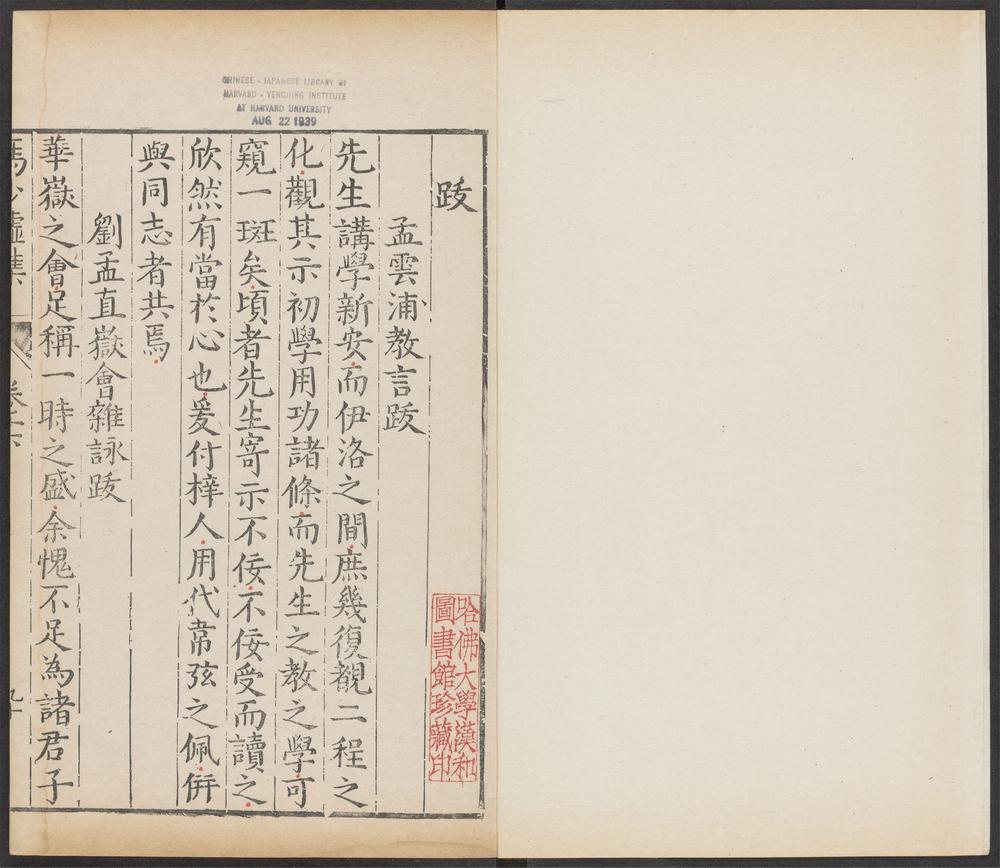 CHINESE - JAPANESE LIBRARY OF
HARVARD - YENCHING INSTITUTE
AT HARVARD UNIVERSITY
AUG 22 1939
跋
孟雲浦教言跋
先生講學新安而伊洛之間庶幾復覩二程之
化觀其示初學用功諸條而先生之教之學可
窺一斑矣頃者先生寄示不佞不佞受而讀之
欣然有當於心也爰付梓人用代韋弦之佩併
與同志者共焉
劉孟直嶽會雜詠跋
華嶽之會足稱一時之盛余愧不足為諸君子
馮少墟集
卷十六
九十
哈佛大學漢和
圖書館珍藏印